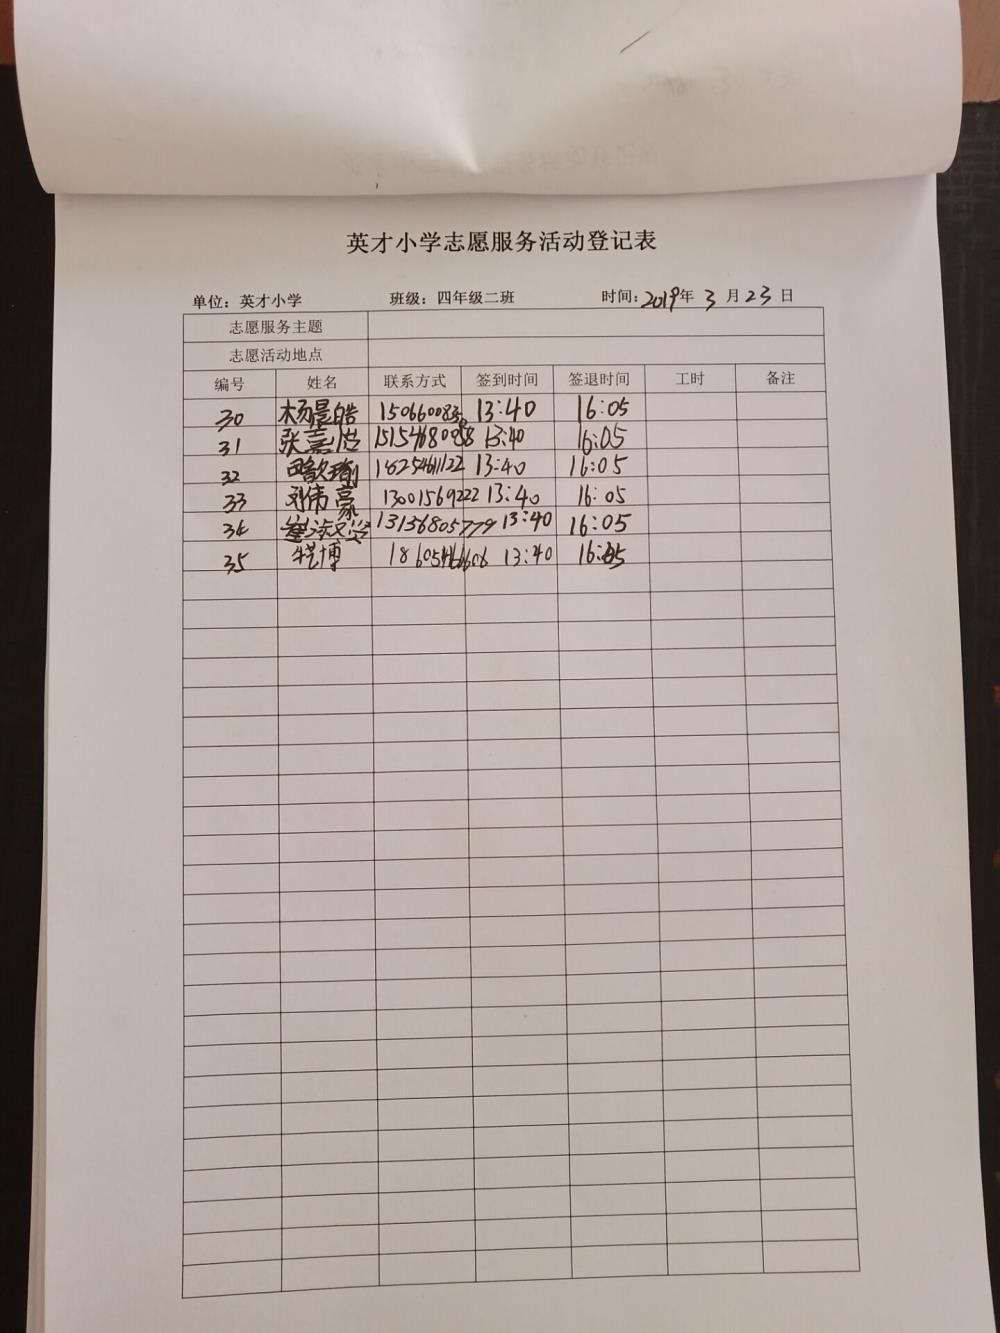 英才小学志愿服务活动登记表
单位：英才小学 班级：四年级二班 时间：2019年 3 月 23 日
志愿服务主题
志愿活动地点
编号 姓名 联系方式 签到时间 签退时间 工时 备注
30 杨景皓 13:40 16:05
31 张嘉 15154680888 13:40 16:05
32 18254611122 13:40 16:05
33 刘伟豪 13001569222 13:40 16:05
34 13156805779 13:40 16:05
35 博 13:40 16:05